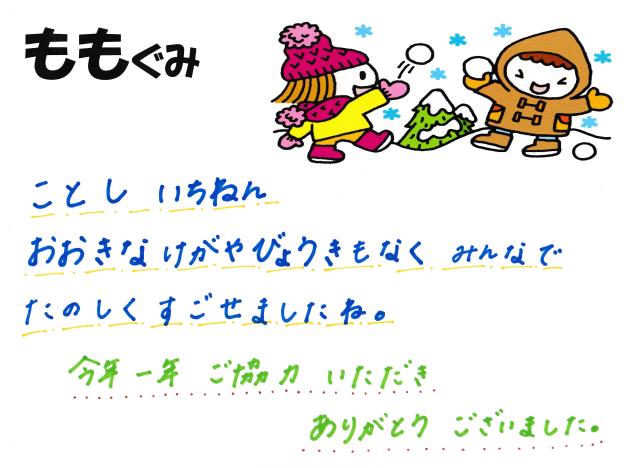 ももぐみ
ことし いちねん
おおきなけがやびょうきもなく みんなで
たのしく すごせましたね。
今年一年 ご協力 いただき
ありがとう ございました。